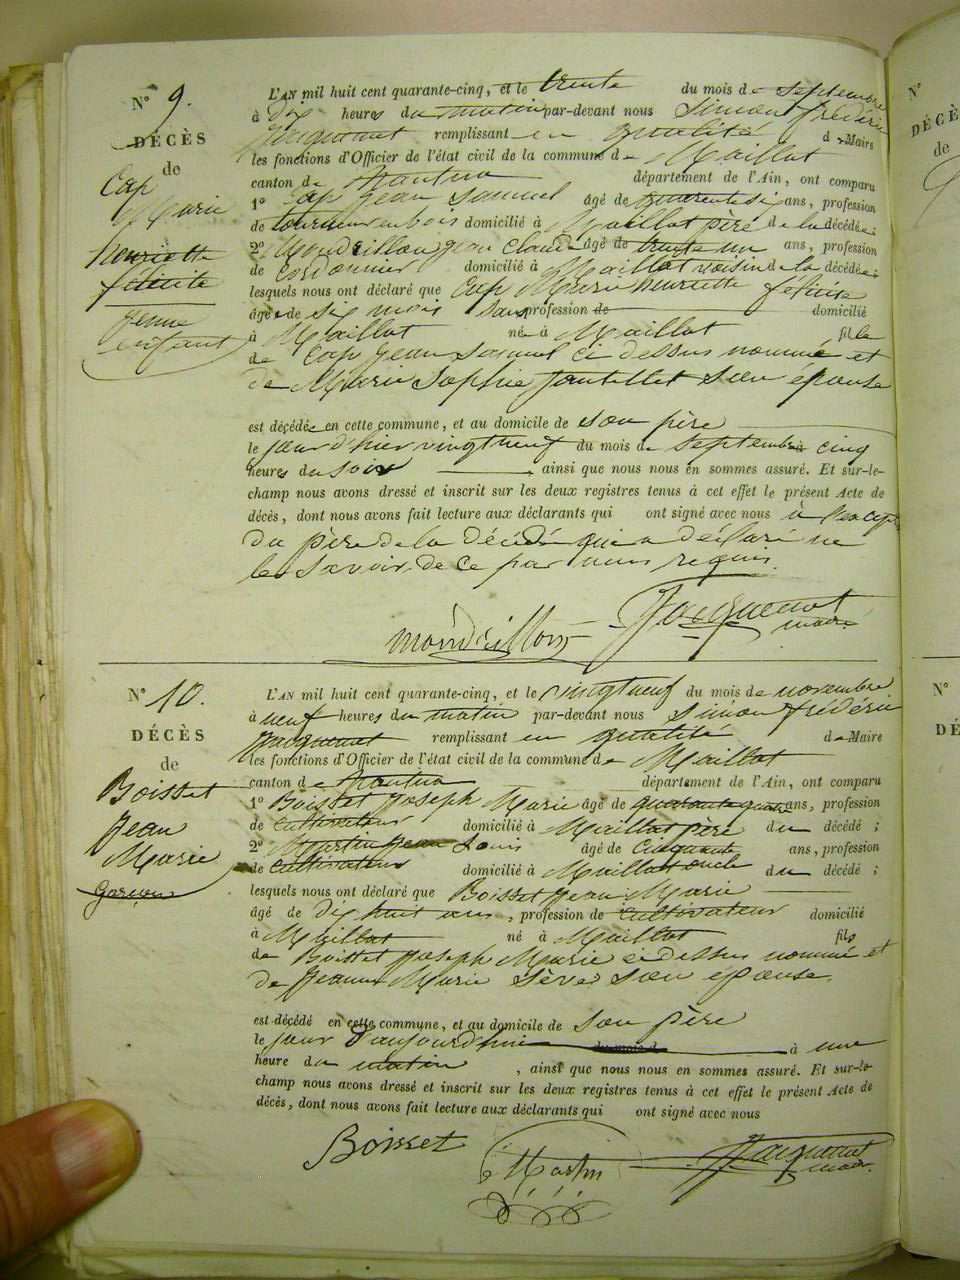 N° 9.
DÉCÈS
de
Cap
Marie
henriette
félicité
jeune
enfant
L'AN mil huit cent quarante-cinq, et le trente du mois de septembre
à dix heures du matin par-devant nous Simon frédéric
Jacquemot remplissant en qualité de Maire
les fonctions d'Officier de l'état civil de la commune de Maillat
canton de Nantua département de l'Ain, ont comparu
1° Cap Jean Samuel âgé de quarante six ans, profession
de tourneur en bois domicilié à Maillat père de la décédée;
2° Mondeillon Jean Claude âgé de trente un ans, profession
de Cordonnier domicilié à Maillat voisin de la décédée;
lesquels nous ont déclaré que Cap Marie henriette félicité
âgée de six mois sans profession de domicilié
à Maillat né à Maillat fille
de Cap Jean Samuel ci dessus nommé et
de Marie Sophie son épouse
est décédée en cette commune, et au domicile de son père
le jour d'hier vingt neuf du mois de septembre à cinq
heures du soir ainsi que nous nous en sommes assuré. Et sur-le-
champ nous avons dressé et inscrit sur les deux registres tenus à cet effet le présent Acte de
décès, dont nous avons fait lecture aux déclarants qui ont signé avec nous à l'excep
du père de la décédée qui a déclaré ne
le savoir de ce par nous requis.
mondeillon Jacquemot
maire
N° 10.
DÉCÈS
de
Boisset
Jean
Marie
garçon
L'AN mil huit cent quarante-cinq, et le vingt neuf du mois de novembre
à neuf heures du matin par-devant nous Simon frédéric
Jacquemot remplissant en qualité de Maire
les fonctions d'Officier de l'état civil de la commune de Maillat
canton de Nantua département de l'Ain, ont comparu
1° Boisset Joseph Marie âgé de quarante quatre ans, profession
de cultivateur domicilié à Maillat père du décédé;
2° Martin Jean Louis âgé de cinquante ans, profession
de cultivateur domicilié à Maillat oncle du décédé;
lesquels nous ont déclaré que Boisset Jean Marie
âgé de dix huit ans, profession de cultivateur domicilié
à Maillat né à Maillat fils
de Boisset Joseph Marie ci dessus nommé et
de Jeanne Marie Sève son épouse
est décédé en cette commune, et au domicile de son père
le jour d'aujourd'hui du mois d à une
heure du matin, ainsi que nous nous en sommes assuré. Et sur-le-
champ nous avons dressé et inscrit sur les deux registres tenus à cet effet le présent Acte de
décès, dont nous avons fait lecture aux déclarants qui ont signé avec nous
Boisset Martin Jacquemot
maire
N°
DÉCÈS
de
N°
DÉ